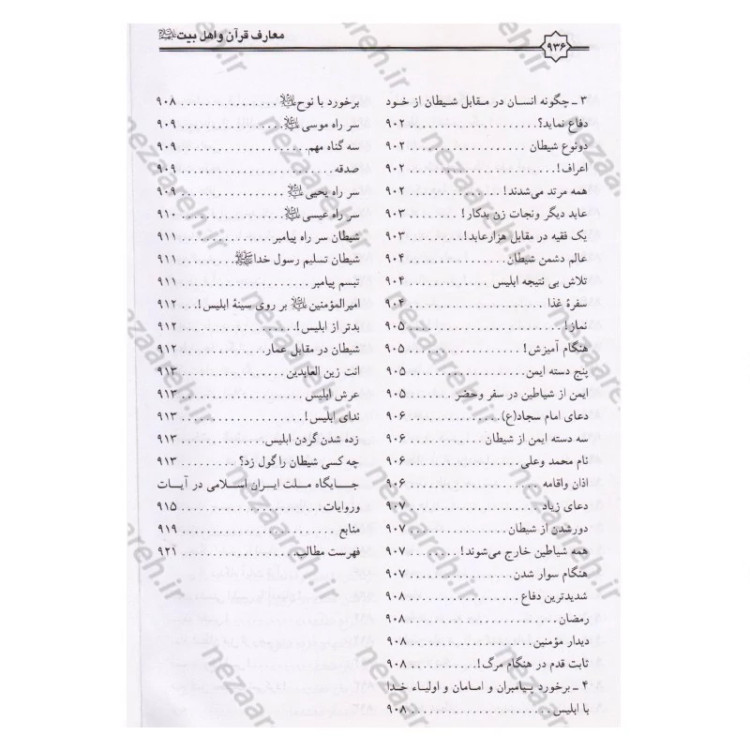 ۹۳۶
معارف قرآن و اهل بیت
۳ ـ چگونه انسان در مقابل شیطان از خود
دفاع نماید؟ ........ ۹۰۲
دونوع شیطان ........ ۹۰۲
اعراف! ........ ۹۰۲
همه مرتد می‌شدند! ........ ۹۰۲
عابد دیگر ونجات زن بدکار! ........ ۹۰۳
یک فقیه در مقابل هزارعابد! ........ ۹۰۳
عالم دشمن شیطان ........ ۹۰۴
تلاش بی نتیجه ابلیس ........ ۹۰۴
سفرهٔ غذا ........ ۹۰۴
نماز! ........ ۹۰۵
هنگام آمیزش! ........ ۹۰۵
پنج دسته ایمن ........ ۹۰۵
ایمن از شیاطین در سفر وحضر ........ ۹۰۵
دعای امام سجاد(ع) ........ ۹۰۶
سه دسته ایمن از شیطان ........ ۹۰۶
نام محمد وعلی ........ ۹۰۶
اذان واقامه ........ ۹۰۶
دعای زیاد ........ ۹۰۷
دورشدن از شیطان ........ ۹۰۷
همه شیاطین خارج می‌شوند! ........ ۹۰۷
هنگام سوار شدن ........ ۹۰۷
شدیدترین دفاع ........ ۹۰۸
رمضان ........ ۹۰۸
دیدار مؤمنین ........ ۹۰۸
ثابت قدم در هنگام مرگ! ........ ۹۰۸
۴ ـ برخورد پیامبران و امامان و اولیاء خدا
با ابلیس ........ ۹۰۸
برخورد با نوح ........ ۹۰۸
سر راه موسی ........ ۹۰۹
سه گناه مهم ........ ۹۰۹
صدقه ........ ۹۰۹
سر راه یحیی ........ ۹۰۹
سر راه عیسی ........ ۹۱۰
شیطان سر راه پیامبر ........ ۹۱۱
شیطان تسلیم رسول خدا ........ ۹۱۱
تبسم پیامبر ........ ۹۱۱
امیرالمؤمنین بر روی سینهٔ ابلیس! ........ ۹۱۲
بدتر از ابلیس! ........ ۹۱۲
شیطان در مقابل عمار ........ ۹۱۲
انت زین العابدین ........ ۹۱۳
عرش ابلیس ........ ۹۱۳
ندای ابلیس! ........ ۹۱۳
زده شدن گردن ابلیس ........ ۹۱۳
چه کسی شیطان را گول زد؟ ........ ۹۱۳
جـایگاه مـلت ایـران اسـلامی در آیـات
وروایات ........ ۹۱۵
منابع ........ ۹۱۹
فهرست مطالب ........ ۹۲۱
nezaareh.ir